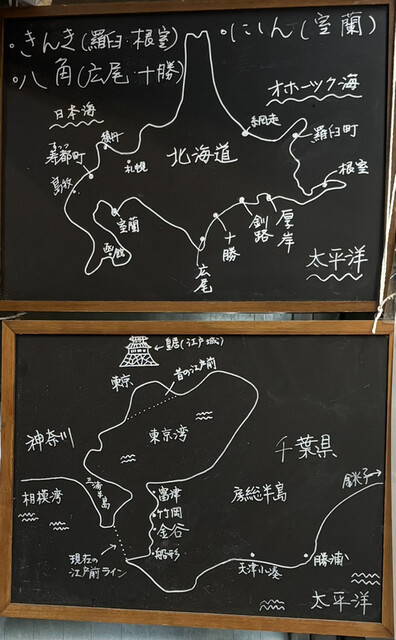 ・きんき(羅臼・根室)
・にしん(室蘭)
・八角(広尾・十勝)
オホーツク海
日本海
網走
羅臼町
積丹
すっつ
寿都町
札幌
北海道
根室
島牧
室蘭
函館
広尾
十勝
釧路
厚岸
太平洋
←皇居(江戸城)
東京
昔の江戸前
神奈川
東京湾
千葉県
銚子→
相模湾
三浦半島
富津
竹岡
金谷
船形
房総半島
現在の
江戸前ライン
天津小湊
勝浦
太平洋